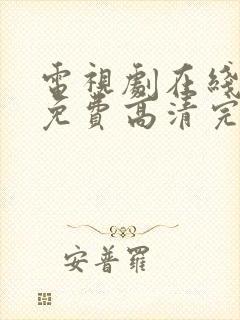 電視劇在綫
免費高清完
安普羅